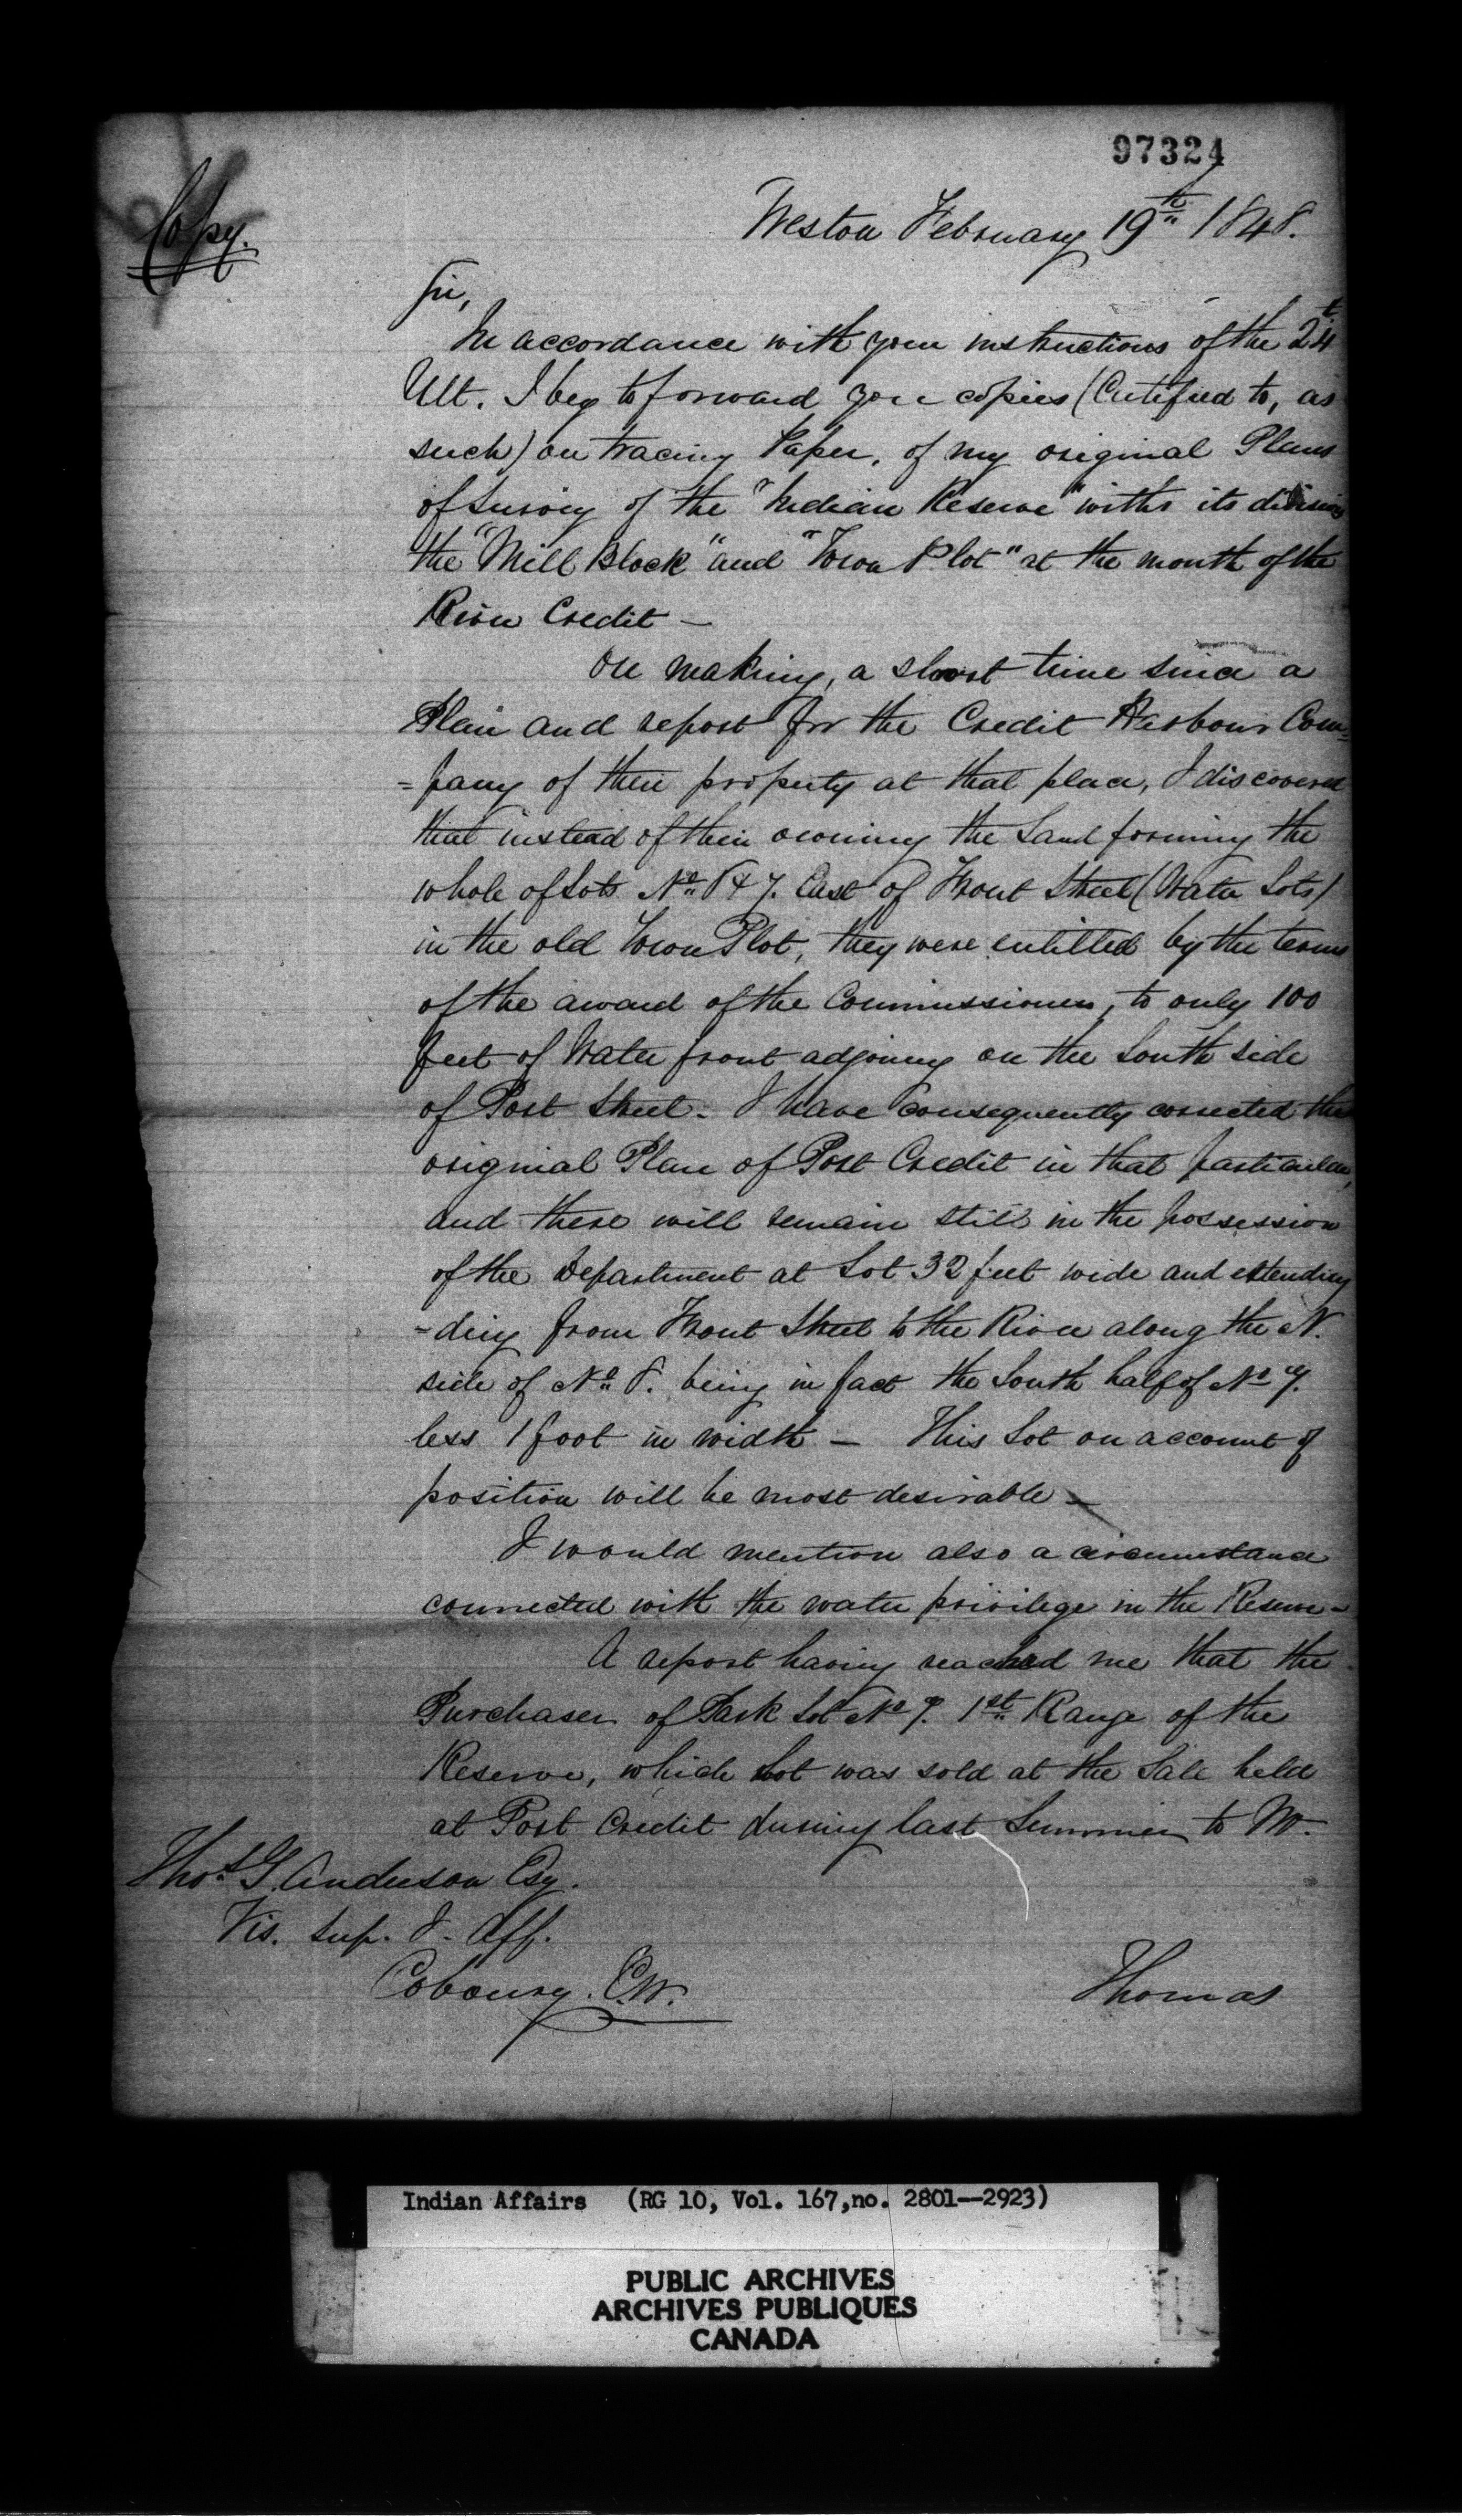 97324
Copy.
Weston February 19th 1848.
Sir,
In accordance with your instructions of the 24t
Ult. I beg to forward you copies (Certified to, as
such) on tracing Paper, of my original Plans
of Survey of the "Indian Reserve" with its divisions
the "Mill Block" and "Town Plot" at the mouth of the
River Credit —
On making, a short time since a
Plan and report for the Credit Harbour Com=
=pany of their property at that place, I discovered
that instead of their owning the Land forming the
whole of Lots No. 8 & 7. East of Front Street (Water Lots)
in the old Town Plot, they were entitled by the terms
of the award of the Commissioners, to only 100
feet of Water front adjoining on the South side
of Port Street. I have consequently corrected the
original Plan of Port Credit in that particular,
and there will remain still in the possession
of the Department at Lot 32 feet wide and extending
-ding from Front Street to the River along the N.
side of No. 8. being in fact the South half of No 7.
less 1 foot in width — This Lot on account of
position will be most desirable —
I would mention also a circumstance
connected with the water privilege in the Reserve —
A report having reached me that the
Purchaser of Park Lot No 7. 1st Range of the
Reserve, which Lot was sold at the Sale held
at Port Credit during last Summer to Mr.
Thos. G. Anderson Esq.
Vis. Sup. I. Aff.
Cobourg. C.W.
Thomas
Indian Affairs (RG 10, Vol. 167,no. 2801--2923)
PUBLIC ARCHIVES
ARCHIVES PUBLIQUES
CANADA